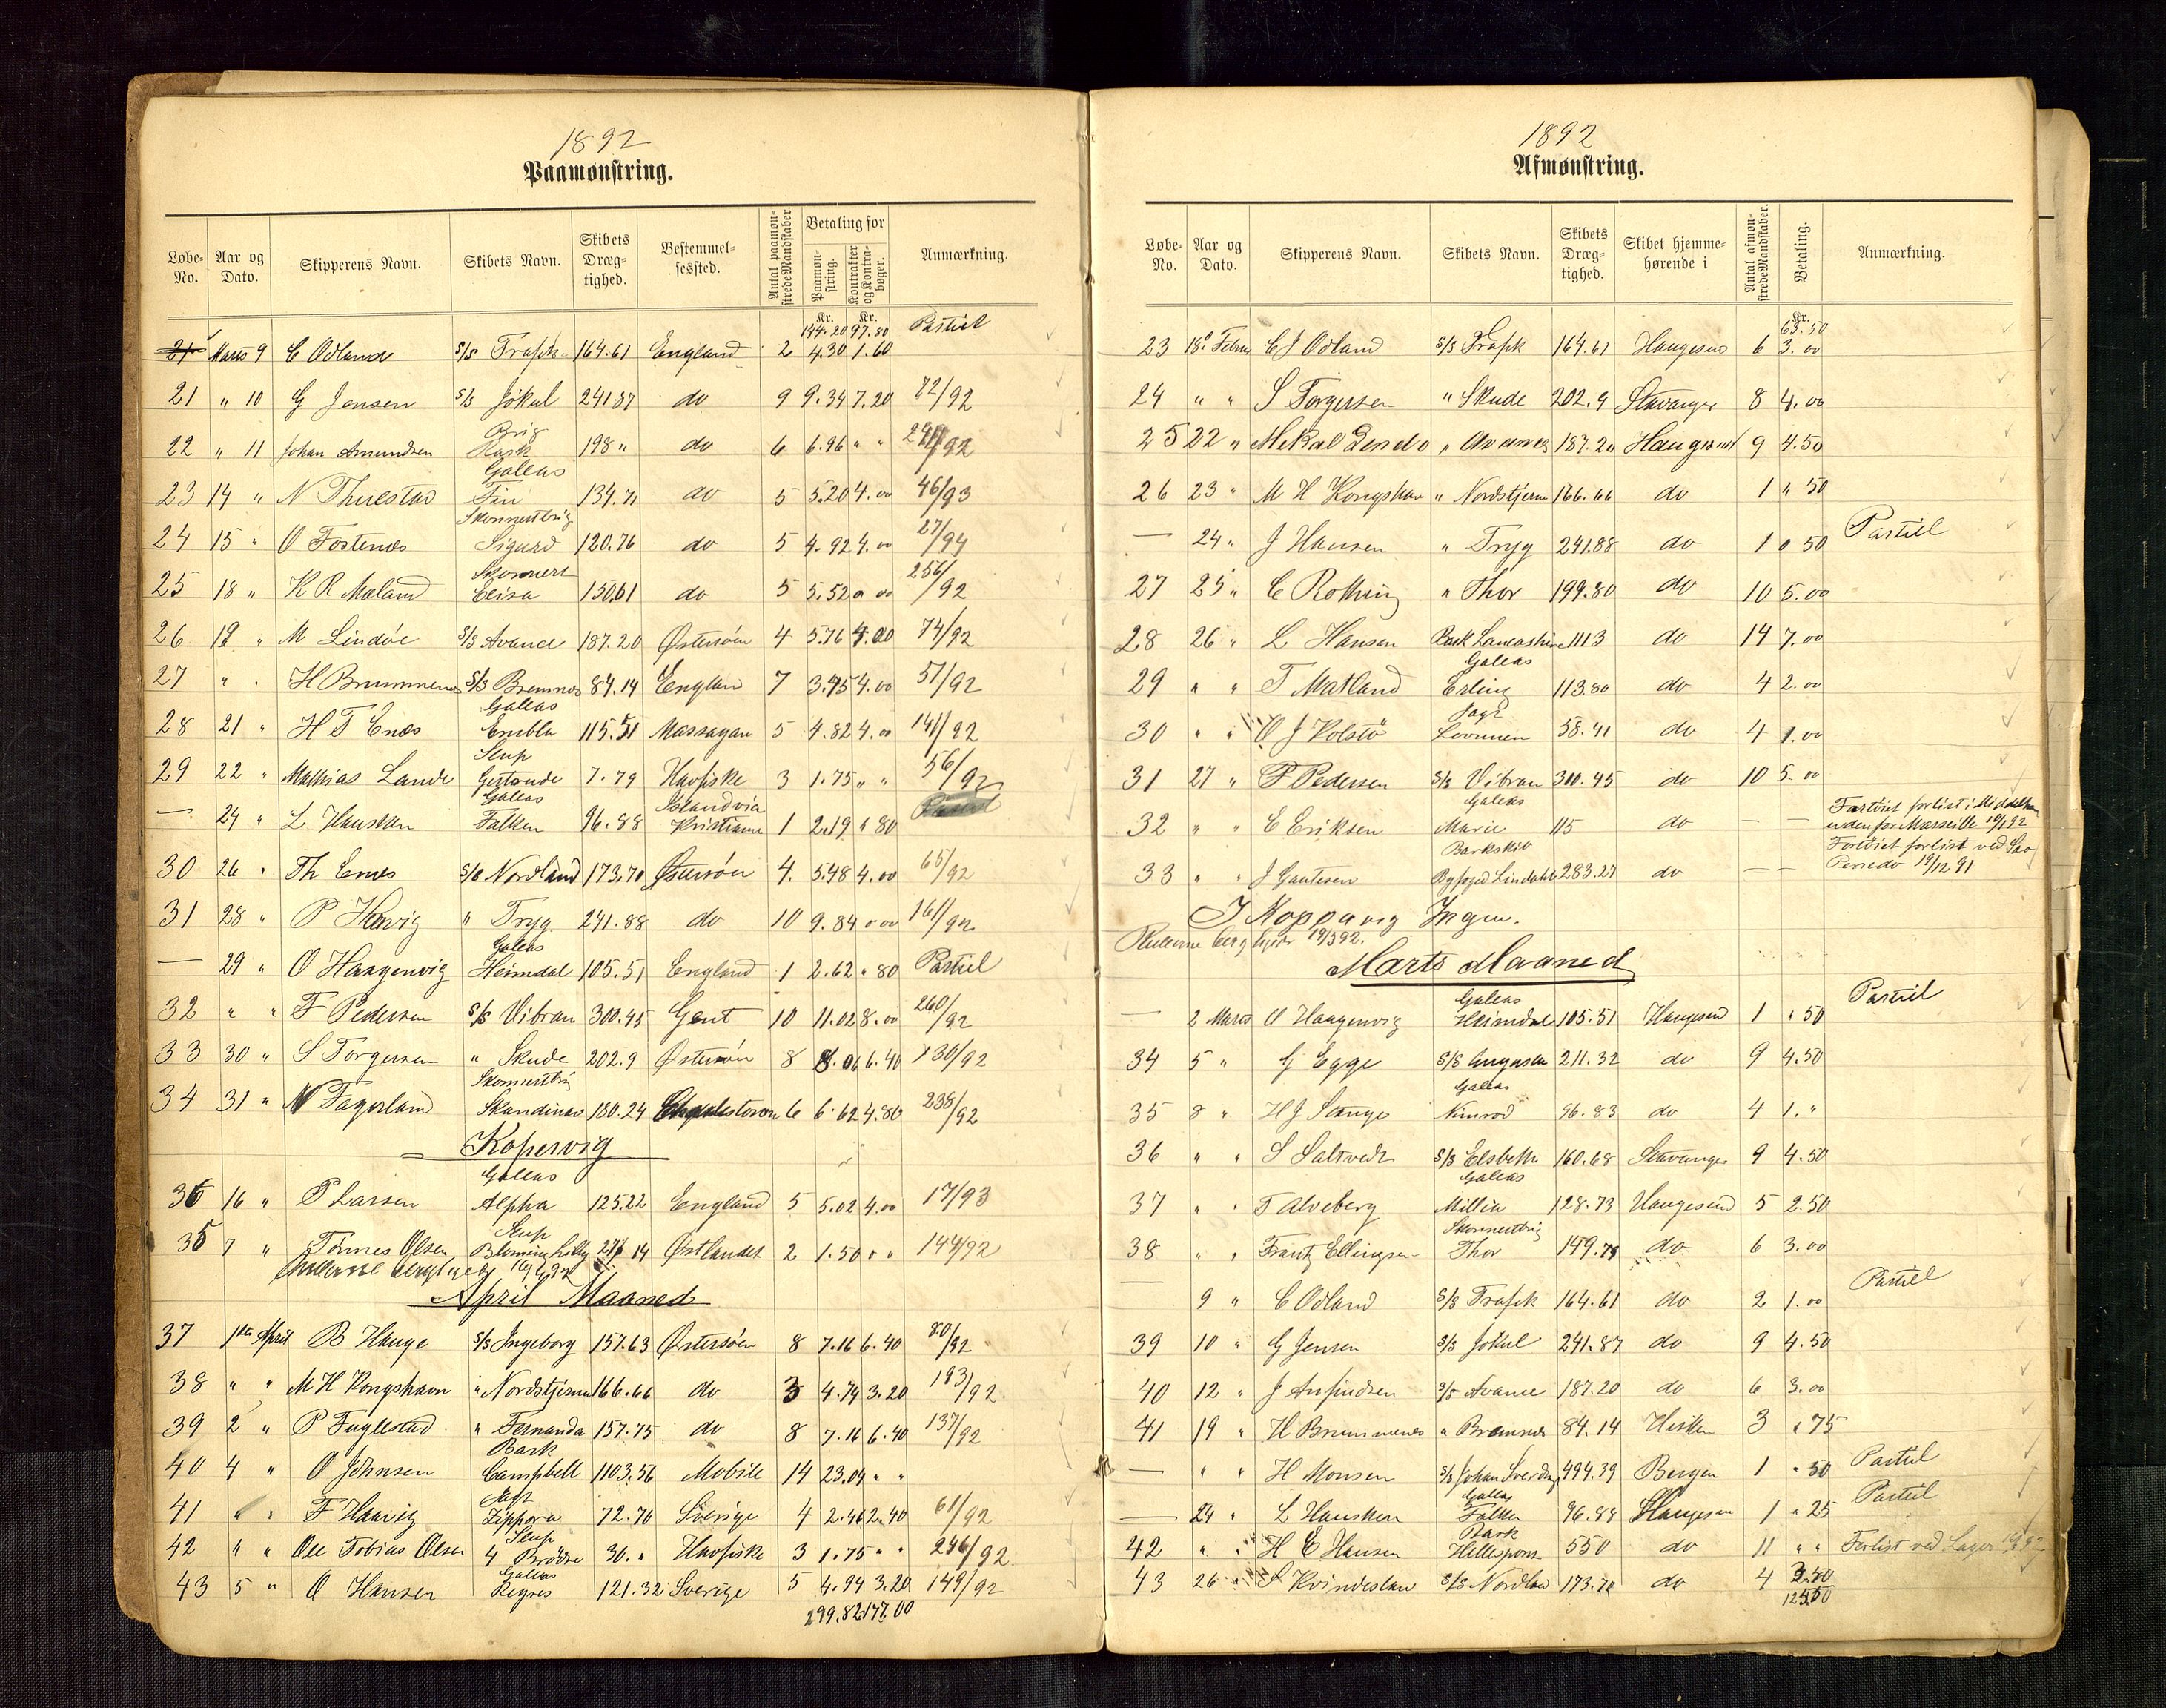 1892
Paamønstring.
Løbe-No. Aar og Dato. Skipperens Navn. Skibets Navn. Skibets Dræg-tighed. Bestemmel-sessted. Antal paamøn-strede Mandskaber. Betaling for Paamøn-string. Kontrakter og Kontra-bøger. Anmærkning.
Kr. 144.20 Kr. 97.80
21 Marts 9 C Odland S/S Trafik 164.61 England 2 4.30 1.60 Partiel
21 " 10 G Jensen S/S Jökul 241.87 do 9 9.34 7.20 72/92
22 " 11 Johan Amundsen Brig Hauk 198 " do 6 6.96 " "
23 14 " N Thuestad Galeas Fin 134.71 do 5 5.20 4.00 46/93
24 15 " O Fostenes Skonnertbrig Sigurd 120.76 do 5 4.92 4.00 27/94
25 18 " K R Mæland Skonnert Elisa 150.61 do 5 5.52 " 00 256/92
26 19 " M Lindøe S/S Avance 187.20 Østersøen 4 5.76 4.00 74/92
27 " " H Brummenes S/S Bremnes 84.14 England 7 3.75 4.00 51/92
28 21 " H T Enæs Galeas Embla 115.51 Massagan 5 4.82 4.00 141/92
29 22 " Mathias Lande Slup Gertrude 7.79 Havfiske 3 1.75 " " 56/92
— 24 " L Hausken Galeas Falken 96.88 Islandvia Kristians 1 2.19 " 80 Partiel
30 26 " Th Enes S/S Nordland 173.70 Østersøen 4 5.48 4.00 65/92
31 28 " P Hervig " Tryg 241.88 do 10 9.84 " 00 161/92
— 29 " O Haagenvig Galeas Heimdal 105.51 England 1 2.62 " 80 Partiel
32 " " F Pedersen S/S Vibran 300.45 Gent 10 11.02 8.00 260/92
33 30 " S Torgersen " Skude 202.9 Østersøen 8 8.06 6.40 130/92
34 31 " N Fagerland Skonnertbrig Skandinav 180.24 Charlestown 6 6.62 4.80 235/92
Kopervig
36 16 " P Larsen Galeas Alpha 125.22 England 5 5.02 4.00 17/93
35 7 " Tønnes Olsen Slup Blominglilly 27.14 Østlandet 2 1.50 " " 144/92
April Maaned
37 1ste April B Hauge S/S Ingeborg 157.63 Østersøen 8 7.16 6.40 80/92
38 " " M H Kongshavn " Nordstjernen 166.66 do 3 4.74 3.20 193/92
39 2 " P Fuglestad " Fernanda 157.75 do 8 7.16 6.40 137/92
40 4 " O Johnsen Bark Campbell 1103.56 Mobile 14 23.04 " "
41 " " F Haavig Jagt Zippora 72.70 Sverige 4 2.46 2.40 61/92
42 " " Ole Tobias Olsen Slup 4 Brödre 30. " Havfiske 3 1.75 " " 246/92
43 5 " O Hansen Galeas Regnes 121.32 Sverige 5 4.94 3.20 149/92
299.82 177.00
1892
Afmønstring.
Løbe-No. Aar og Dato. Skipperens Navn. Skibets Navn. Skibets Dræg-tighed. Skibet hjemme-hørende i Antal afmøn-strede Mandskaber. Betaling. Anmærkning.
Kr. 63.50
23 18 Febru C J Odland S/S Trafik 164.61 Haugesund 6 3.00
24 " " S Torgersen " Skude 202.9 Stavanger 8 4.00
25 22 " Mikal Lendo " Avance 187.20 Haugesund 9 4.50
26 23 " M H Kongshavn " Nordstjernen 166.66 do 1 " 50
— 24 " J Hansen " Tryg 241.88 do 1 " 50 Partiel
27 25 " C Rothing " Thor 199.80 do 10 5.00
28 26 " L Hansen Bark Lancashire 1113 do 14 7.00
29 " " T Matland Galeas Erling 113.80 do 4 2.00
30 " " O J Kolstö Jagt Lovunen 58.41 do 4 1.00
31 27 " F Pedersen S/S Vibran 300.45 do 10 5.00
32 " " E Eriksen Galeas Marie 115 do — — Fartöiet forlist i Middelhav
udenfor Marseille 10/1 92
33 " " J Gautesen Barkskib Byfoged Lindahl 283.27 do — — Fartöiet forlist ved Sao
Penedo 19/12 91
I Koppervig Ingen.
Marts Maaned
— 2 Marts O Haagenvig Galeas Heimdal 105.51 Haugesund 1 " 50 Partiel
34 5 " G Egge S/S 211.32 do 9 4.50
35 8 " H J Stange Galeas Nimrod 96.83 do 4 1. "
36 " " S Saltvedt S/S Elsbeth 160.68 Stavanger 9 4.50
37 " " T Alveberg Galeas Millia 128.73 Haugesund 5 2.50
38 " " Frantz Ellingsen Skonnertbrig Thor 149.78 do 6 3.00
— 9 " C Odland S/S Trafik 164.61 do 2 1.00 Partiel
39 10 " G Jensen S/S Jökul 241.87 do 9 4.50
40 12 " J Anfindsen S/S Avance 187.20 do 6 3.00
41 19 " H Brummenes " Bremnes 84.14 3 " 75
— " " H Monsen S/S Johan Sverdrup 494.39 Bergen 1 " 50 Partiel
— 24 " L Hausken Galeas Falken 96.88 Haugesund 1 " 25 Partiel
42 " " H E Hansen Bark Hellespont 550 do 11 " " Forlist ved
43 26 " S Kvindesland S/S Nordland 173.70 do 4 2.50
125.50